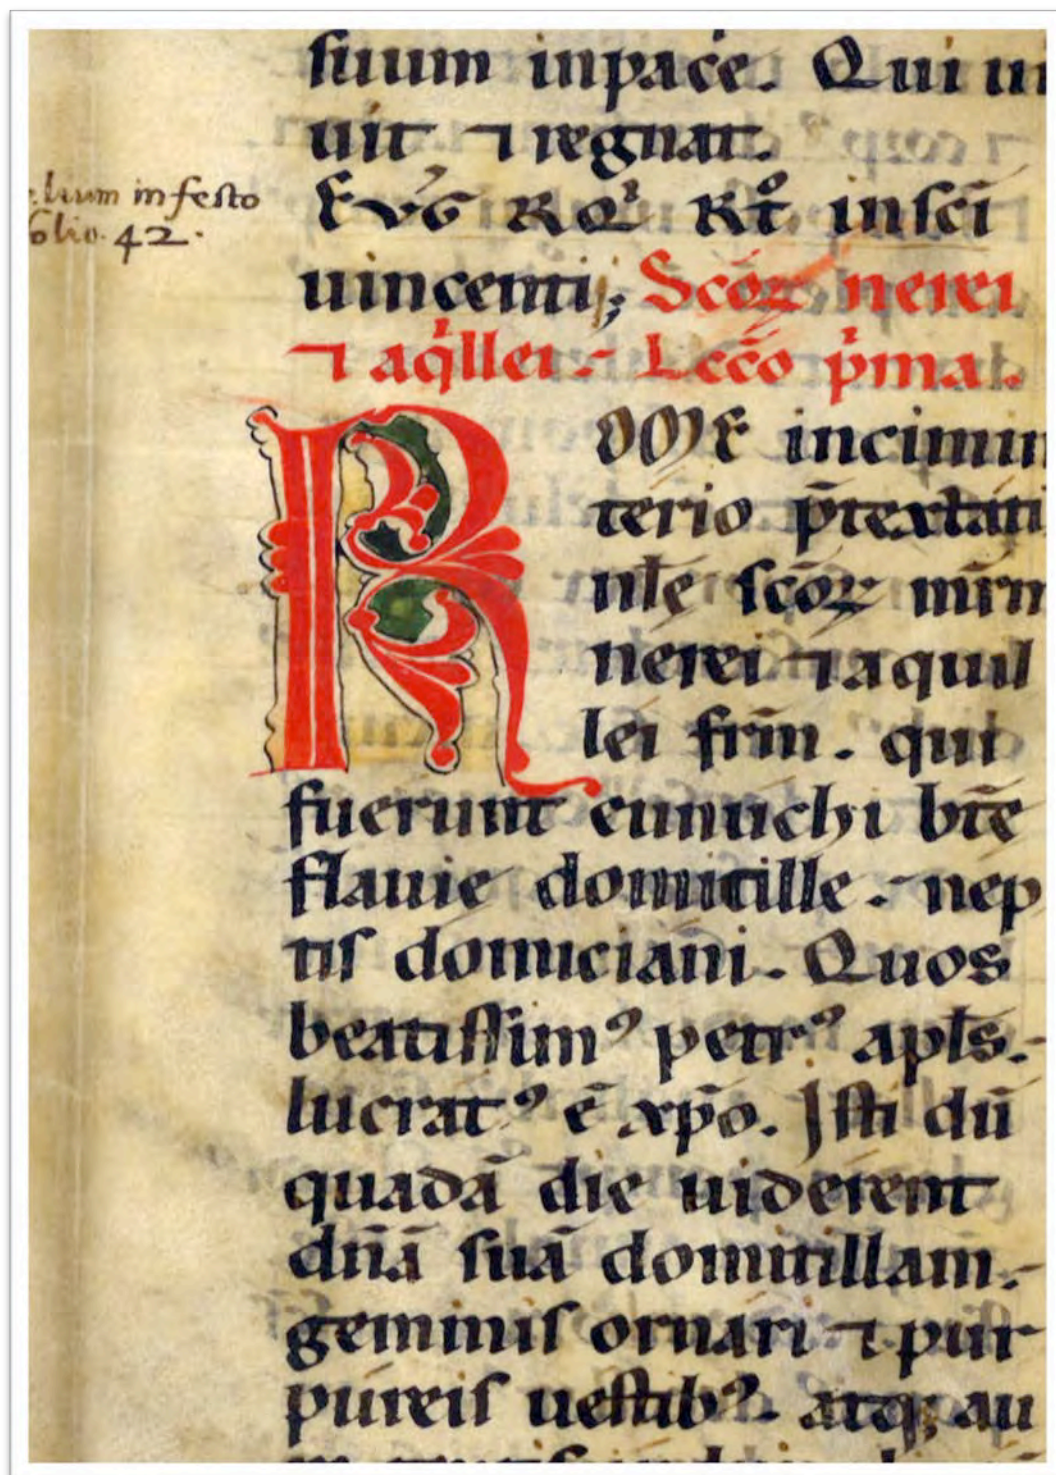 suum inpace. Qui ui
uit ⁊ regnat.
lium in festo
folio. 42.
Evg̃ RQͥ R̃t inscĩ
uincenti; Scõꝝ nerei
⁊ aqͥllei. Lecc̃o pͥma.
ROME incimin
terio p̃textati
nl̃e scõꝝ mr̃m
nerei ⁊ aquil
lei fr̃m. qui
fuerunt eunuchi bt̃e
flauie domitille. nep
tis domiciani. Quos
beatissimꝰ petrꝰ apl̃s.
lucratꝰ ẽ xp̃o. Isti dũ
quadã die uiderent
dñã suã domitillam.
gemmis ornari ⁊ pur
pureis uestibꝰ. atq; au